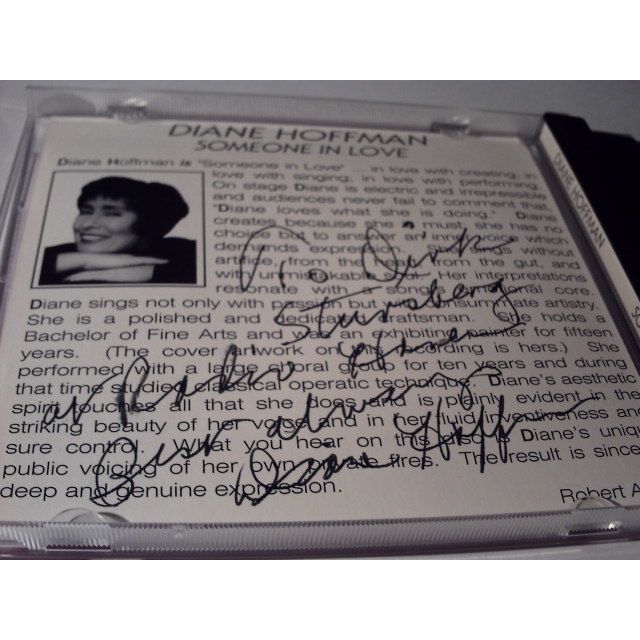 DIANE HOFFMAN
SOMEONE IN LOVE
Diane Hoffman is "Someone in Love" ... in love with creating, in
love with singing, in love with performing.
On stage Diane is electric and irrepressible
and audiences never fail to comment that
"Diane loves what she is doing." Diane
creates because she must, she has no
choice but to answer an inner voice which
demands expression. She sings without
artifice, from the heart, from the gut, and
with unmistakable soul. Her interpretations
resonate with a song's emotional core.
Diane sings not only with passion but with consummate artistry.
She is a polished and dedicated craftsman. She holds a
Bachelor of Fine Arts and was an exhibiting painter for fifteen
years. (The cover artwork on this recording is hers.) She
performed with a large choral group for ten years and during
that time studied classical operatic technique. Diane's aesthetic
spirit touches all that she does and is plainly evident in the
striking beauty of her voice and in her fluid inventiveness and
sure control. What you hear on this disc is Diane's uniqu
public voicing of her own private fires. The result is since
deep and genuine expression.
Robert A
To Dirk
Stursberg
at Radio
Best always
Diane Hoffman
DIANE HOFFMAN